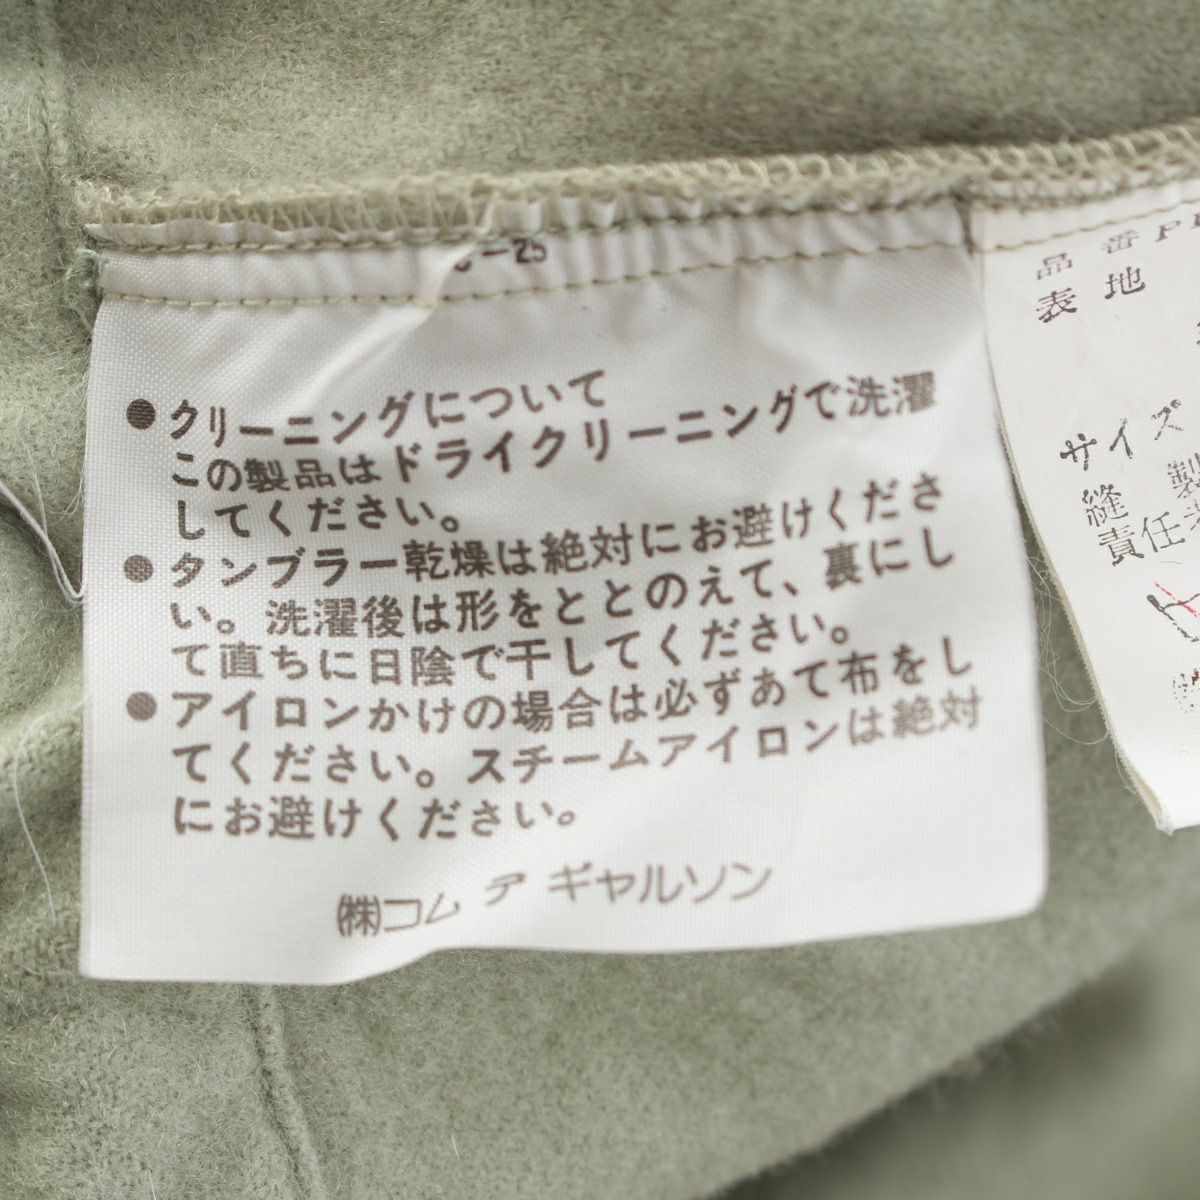 -25
●クリーニングについて
この製品はドライクリーニングで洗濯
してください。
●タンブラー乾燥は絶対にお避けくださ
い。洗濯後は形をととのえて、裏にし
て直ちに日陰で干してください。
●アイロンかけの場合は必ずあて布をし
てください。スチームアイロンは絶対
にお避けください。
㈱コム デ ギャルソン
品 番 P
表 地
サイズ
縫 製
責任